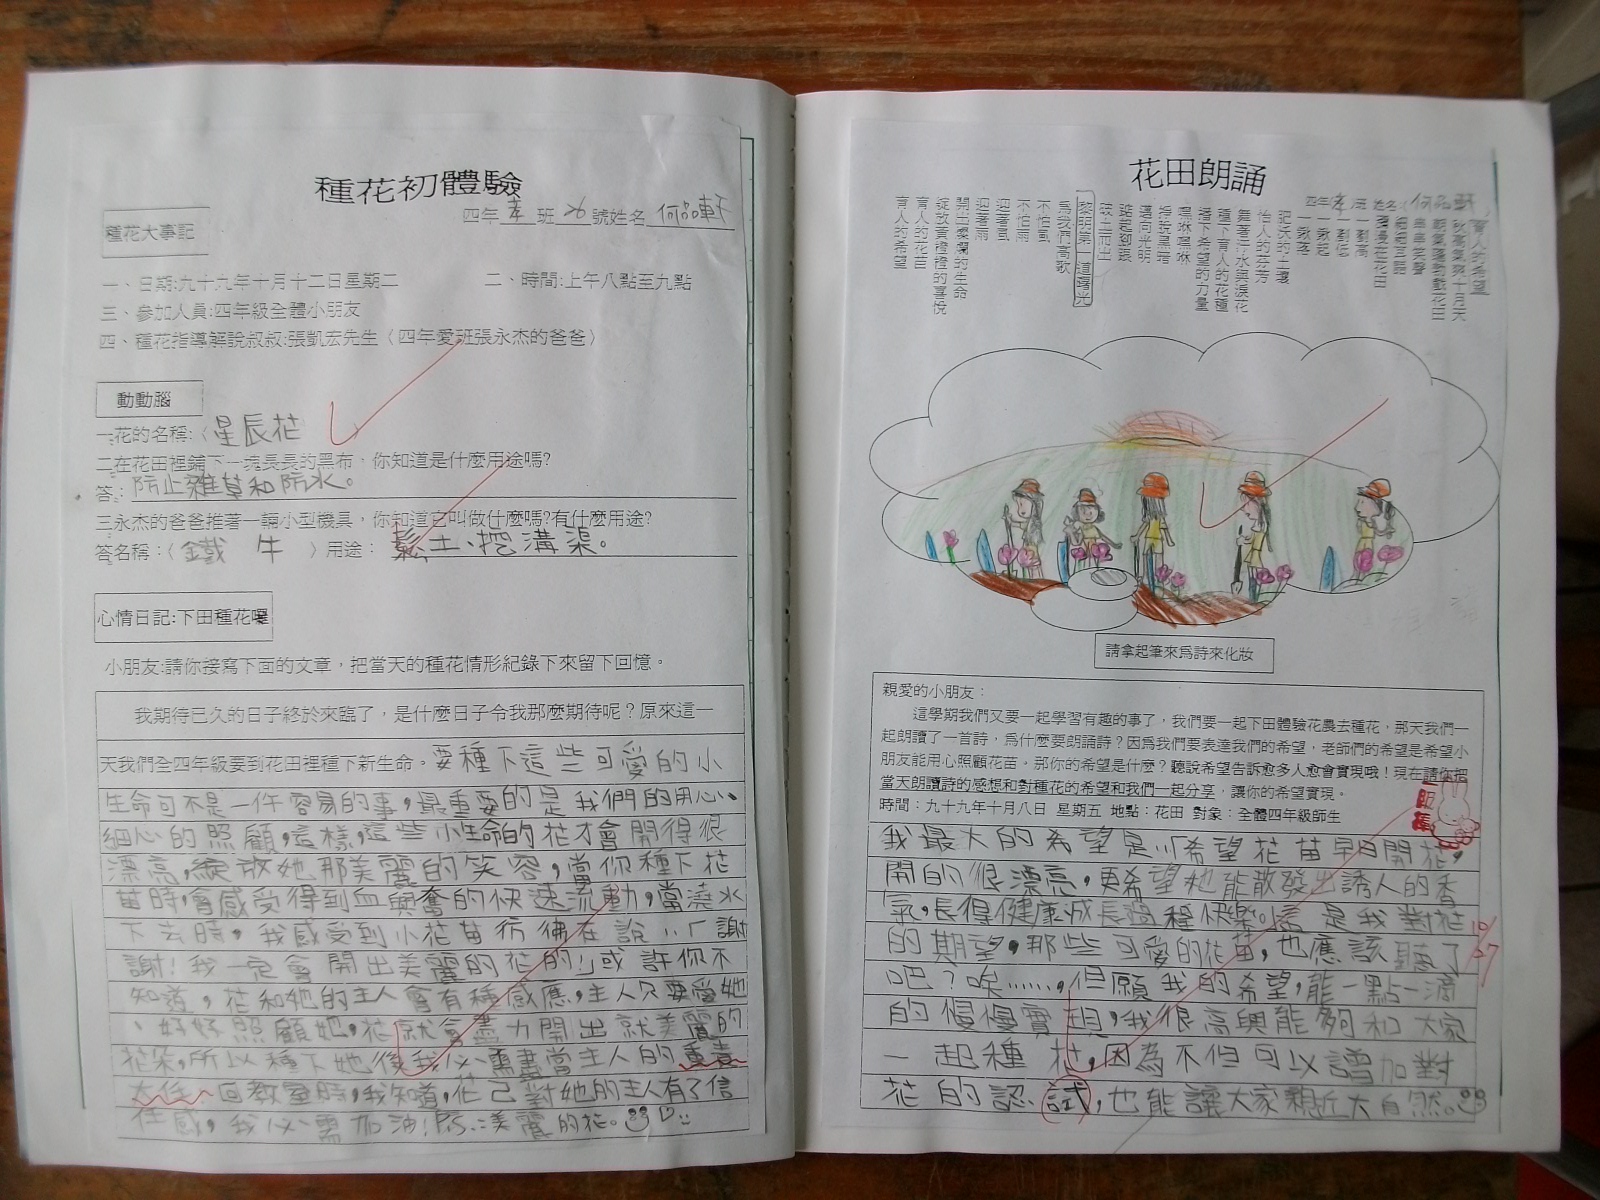 種花初體驗
四年 孝 班 26 號姓名 何品軒
種花大事記
一、日期:九十九年十月十二日星期二
二、時間:上午八點至九點
三、參加人員:四年級全體小朋友
四、種花指導解說叔叔:張凱宏先生〈四年愛班張永杰的爸爸〉
動動腦
一花的名稱:〈星辰花
二在花田裡鋪下一塊長長的黑布,你知道是什麼用途嗎?
答:防止雜草和防水。
三永杰的爸爸推著一輛小型機具,你知道它叫做什麼嗎?有什麼用途?
答名稱:〈鐵 牛 〉用途:鬆土、挖溝渠。
心情日記:下田種花囉
小朋友:請你接寫下面的文章,把當天的種花情形紀錄下來留下回憶。
我期待已久的日子終於來臨了,是什麼日子令我那麼期待呢?原來這一
天我們全四年級要到花田裡種下新生命。要種下這些可愛的小
生命可不是一件容易的事,最重要的是我們的用心、
細心的照顧,這樣,這些小生命的花才會開得很
漂亮,綻放她那美麗的笑容,當你種下花
苗時,會感受得到血興奮的快速流動,當澆水
下去時,我感受到小花苗彷彿在說:「謝
謝!我一定會開出美麗的花的!」或許你不
知道,花和她的主人會有種感應,主人只要愛她
、好好照顧她,花就會盡力開出就美麗的
花朵,所以種下她後我必需盡當主人的重責
大任。回教室時,我知道,花已對她的主人有了信
任感,我必需加油!PS:美麗的花。
花田朗誦
四年 孝 班 姓名〈何品軒〉
育人的希望
秋高氣爽十月天
朝氣蓬勃戲花田
串串笑聲
細細言語
瀰漫在花田
一剷高
一剷低
一鍬起
一鍬落
肥沃的土壤
怡人的芬芳
舞著汗水與淚花
種下育人的花種
播下希望的力量
嘿咻嘿咻
掙脫黑暗
邁向光明
踮起腳跟
破土而出
黎明第一道曙光
為我們高歌
不怕風
不怕雨
迎著風
迎著雨
開出燦爛的生命
綻放黃橙橙的喜悅
育人的花苗
育人的希望
請拿起筆來為詩來化妝
親愛的小朋友:
這學期我們又要一起學習有趣的事了,我們要一起下田體驗花農去種花,那天我們一
起朗讀了一首詩,為什麼要朗誦詩?因為我們要表達我們的希望,老師們的希望是希望小
朋友能用心照顧花苗。那你的希望是什麼?聽說希望告訴愈多人愈會實現哦!現在請你把
當天朗讀詩的感想和對種花的希望和我們一起分享,讓你的希望實現。
時間:九十九年十月八日 星期五 地點:花田 對象:全體四年級師生
我最大的希望是:「希望花苗早日開花,
開的很漂亮,更希望她能散發出誘人的香
氣,長得健康成長過程快樂。」這是我對花
的期望,那些可愛的花苗,也應該聽了
吧?唉……,但願我的希望,能一點一滴
的慢慢實現,我很高興能夠和大家
一起種花,因為不但可以增加對
花的認試,也能讓大家親近大自然。
10/27